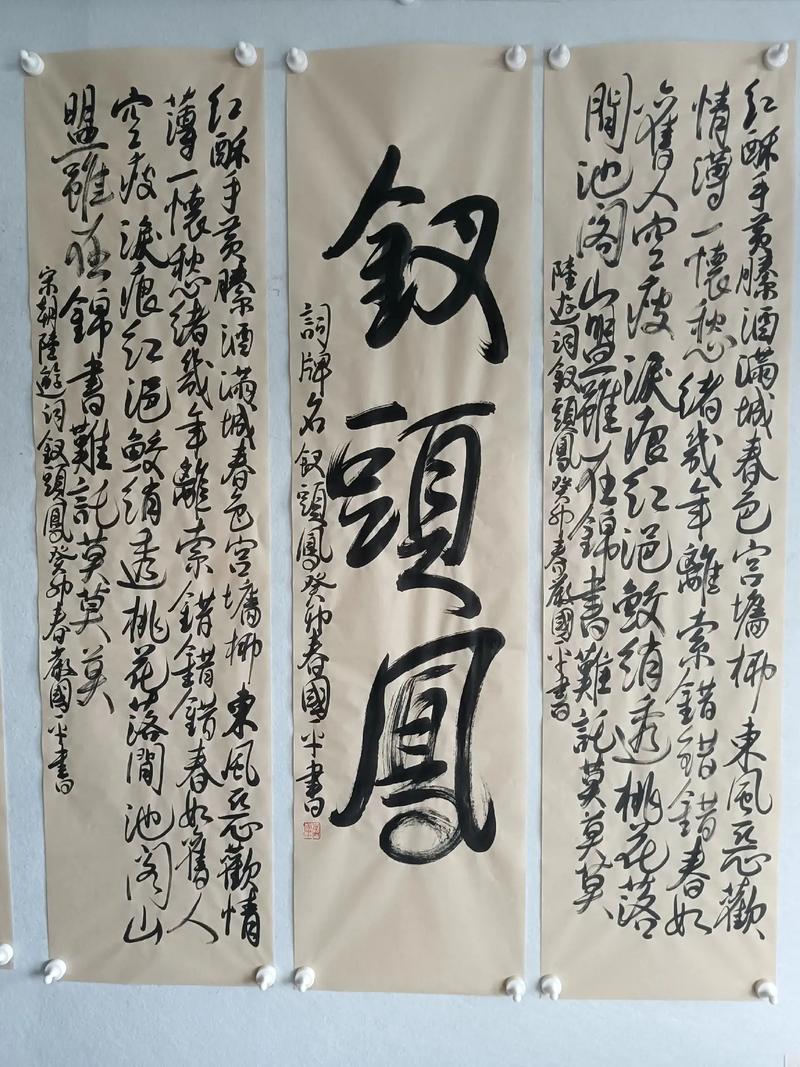 红酥手黄縢酒滿城春色宫墻柳東風惡歡
情薄一懷愁緒幾年離索錯錯錯春如
舊人空瘦淚痕红浥鲛绡透桃花落
閒池阁山盟雖在錦書難託莫莫莫
陸遊词釵頭鳳癸卯春嚴國平書
釵頭鳳
詞牌名釵頭鳳癸卯春國平書
红酥手黄縢酒滿城春色宫墻柳東風惡歡情
薄一懷愁緒幾年離索錯錯錯春如舊人
空瘦淚痕红浥鲛绡透桃花落閒池阁山
盟雖在錦書難託莫莫莫
宋朝陸遊词釵頭鳳癸卯春嚴國平書